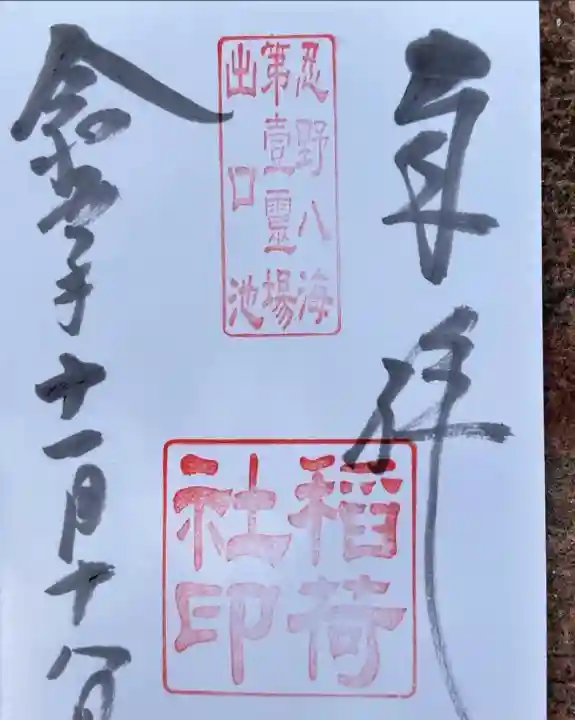 奉拝
忍野八海
第壹靈場
出口池
稲荷
社印
令和五年十一月十八日